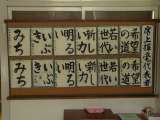 席上揮毫代表者
希望の道
若い世代
新しい力
明るい
みち
希望の道
若い世代
新しい力
明るい
みち